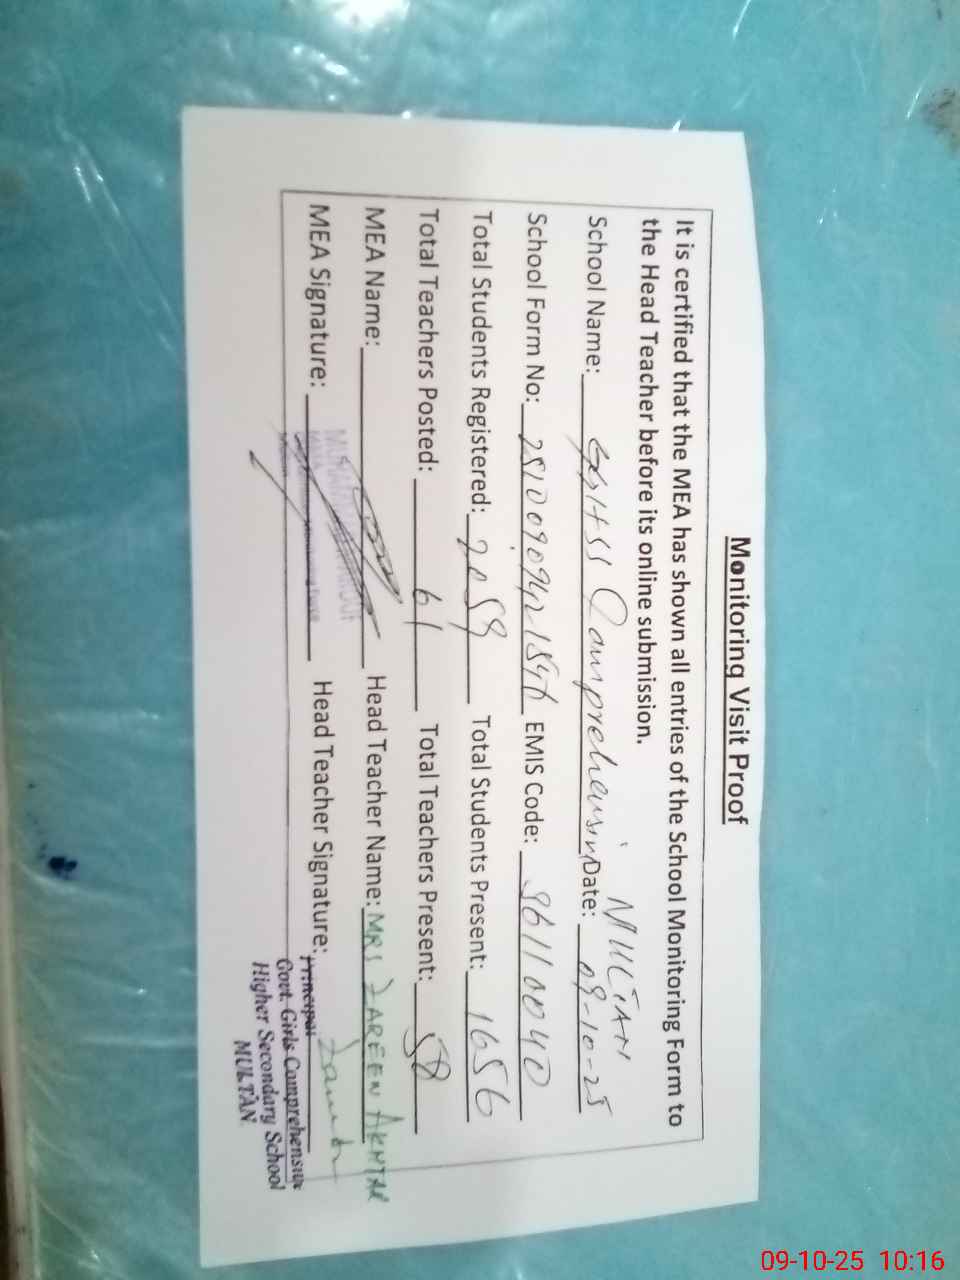 Monitoring Visit Proof
It is certified that the MEA has shown all entries of the School Monitoring Form to
the Head Teacher before its online submission.
School Name: GGHSS Comprehensive MULTAN Date: 09-10-25
School Form No: EMIS Code: 36110040
Total Students Registered: 2059 Total Students Present: 1656
Total Teachers Posted: 61 Total Teachers Present: 58
MEA Name: Head Teacher Name: MRS ZAREEN AKHTAR
MEA Signature: Head Teacher Signature:
Principal
Govt. Girls Comprehensive
Higher Secondary School
MULTAN.
09-10-25 10:16